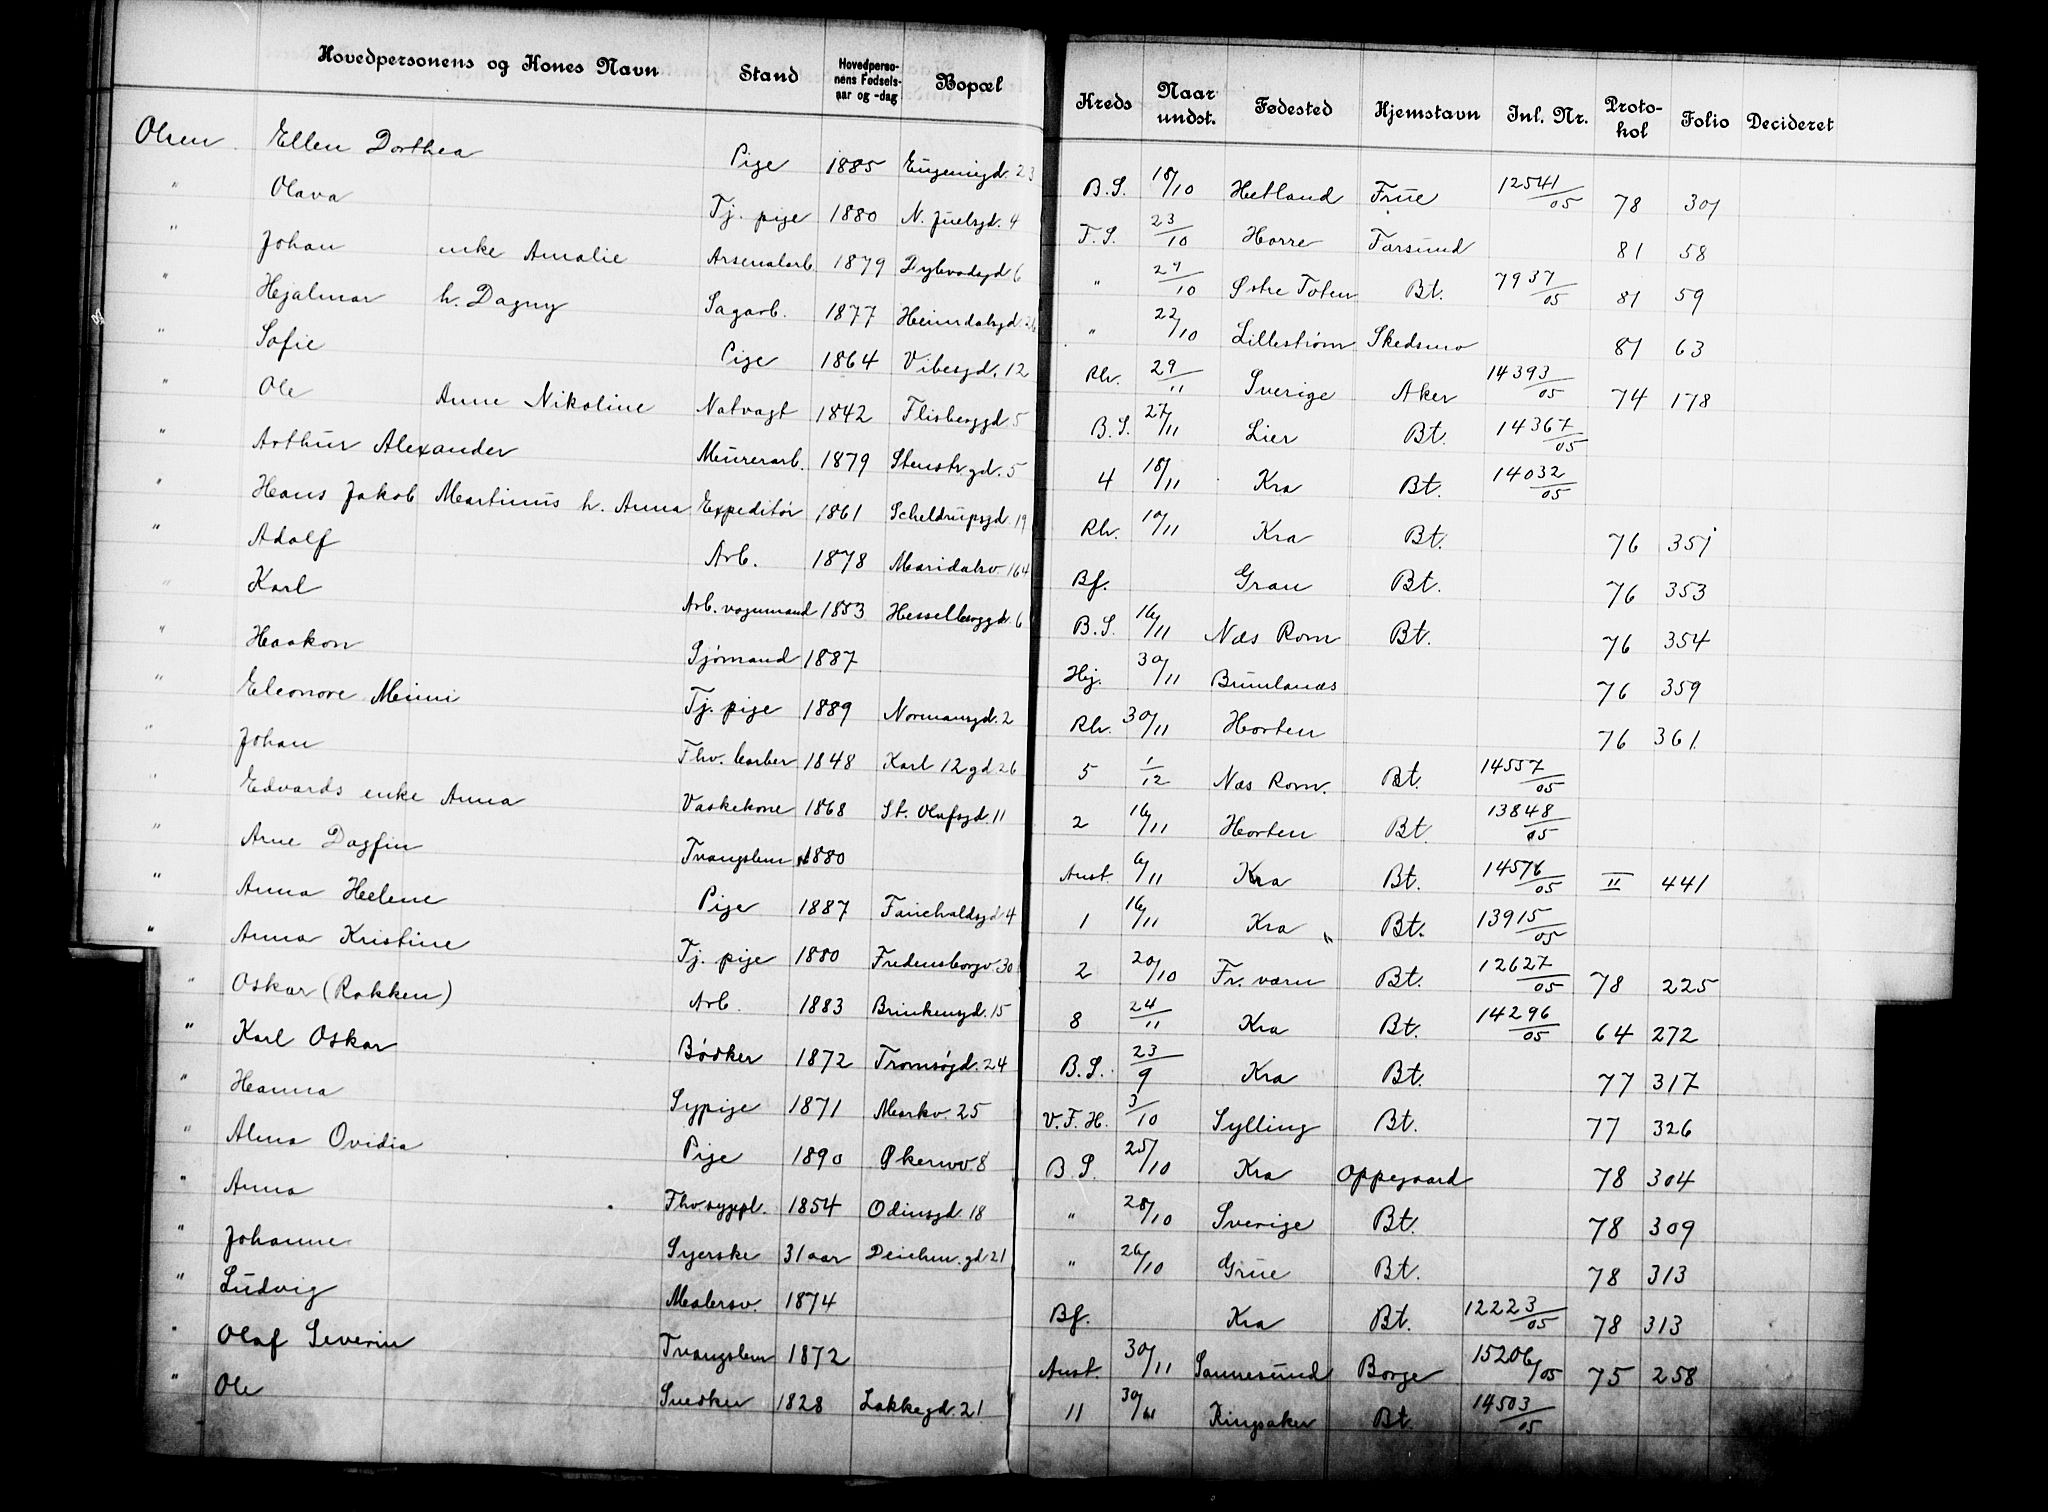 Hovedpersonens og Kones Navn Stand Hovedpersonens Fødselsaar og -dag Bopæl Kreds Naar undst. Fødested Hjemstavn Inl. Nr. Protokol Folio Decideret
Olsen Ellen Dorthea Pige 1885 Eugenigd. 23 B.S. 18/10 Hetland Frue 12541/05 78 301
" Olava Tj. pige 1880 N. Juelsgd. 4 F.S. 23/10 Farsund 81 58
" Johan enke Amalie Arsenalarb. 1879 Dybvadsgd 6 " 27/10 Østre Toten Bt. 7937/05 81 59
" Hjalmar h. Dagny Sagarb. 1877 Heimdalsgd. 26 " 22/10 Lillestrøm Skedsmo 81 63
" Sofie Pige 1864 Vibesgd. 12 Rh. 29/11 Sverige Aker 14393/05 74 178
" Ole Anne Nikoline Natvagt 1842 Flisberggd 5 B.S. 27/11 Lier Bt. 14367/05
" Arthur Alexander Murerarb. 1879 Stenstr.gd. 5 4 18/11 Kra Bt. 14032/05
" Hans Jakob Martinus h. Anna Expeditør 1861 Scheldrupsgd. 19 Rh. 10/11 Kra Bt. 76 351
" Adolf Arb. 1878 Maridalsv 164 Bf. Gran Bt. 76 353
" Karl Arb. vognmand 1853 Hesselberggd. 6 B.S. 16/11 Næs Rom Bt. 76 354
" Haakon Sjømand 1887 Hj. 30/11 Brunlanæs 76 359
" Eleonore Mimi Tj. pige 1889 Normansgd. 2 Rh. 30/11 Horten 76 361
" Johan Fhv. barber 1848 Karl 12 gd 26 5 1/12 Næs Rom. Bt. 14557/05
" Edvards enke Anna Vaskekone 1868 St. Olafsgd. 11 2 16/11 Horten Bt. 13848/05
" Arne Dagfin Tvangslem 1880 Anst. 6/11 Kra Bt. 14576/05 II 441
" Anna Helene Pige 1887 Fauchaldsgd 4 1 16/11 Kra " Bt. 13915/05
" Anna Kristine Tj. pige 1880 Fredensborgv. 30 2 20/10 Fr. værn Bt. 12627/05 78 225
" Oskar (Rokken) Arb. 1883 Brinkensgd. 15 8 24/11 Kra Bt. 14296/05 64 272
" Karl Oskar Bødker 1872 Tromsøgd. 24 B.S. 23/9 Kra Bt. 77 317
" Hanna Sypige 1871 Markv. 25 V.F.H. 3/10 Sylling Bt. 77 326
" Alma Ovidia Pige 1890 Økernv 8 B.S. 25/10 Kra Oppegaard 78 304
" Anna Fhv. sygepl. 1854 Odinsgd. 18 " 28/10 Sverige Bt. 78 309
" Johanne Syerske 31 aar Deichm. gd 21 " 26/10 Grue Bt. 78 313
" Ludvig Malersv. 1874 Bf. Kra Bt. 12223/05 78 313
" Olaf Severin Tvangslem 1872 Anst. 30/11 Sannesund Borge 15206/05 75 258
" Ole Snedker 1828 Lakkegd. 21 11 30/11 Ringsaker Bt. 14503/05